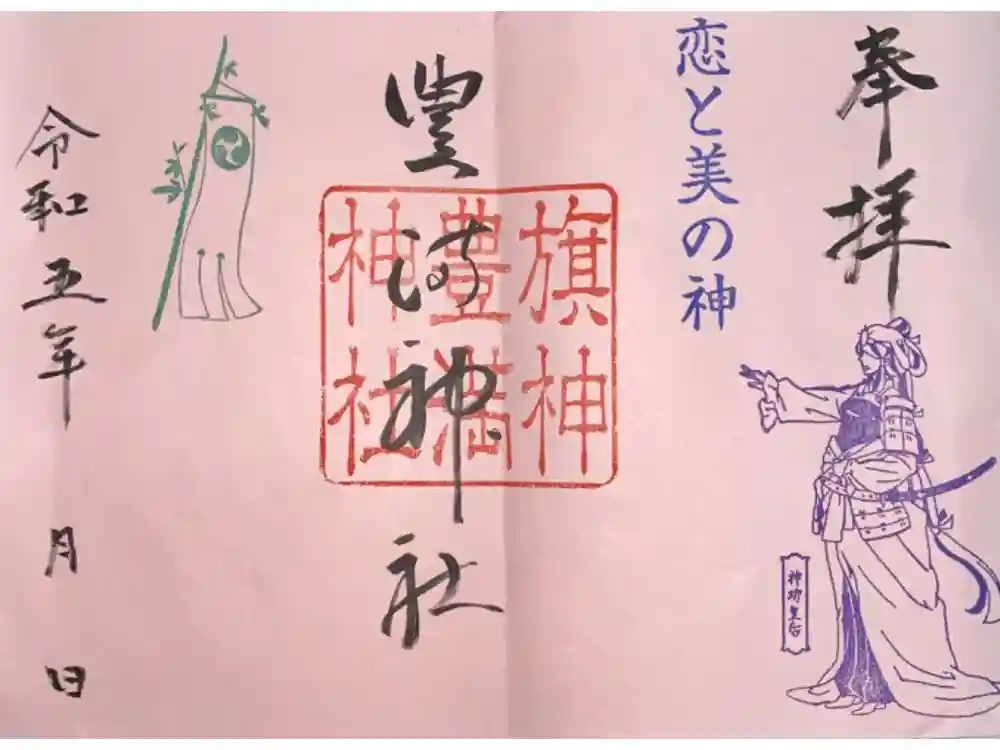 奉拝
恋と美の神
神功皇后
豊満神社
旗神
豊満
神社
令和五年 月 日